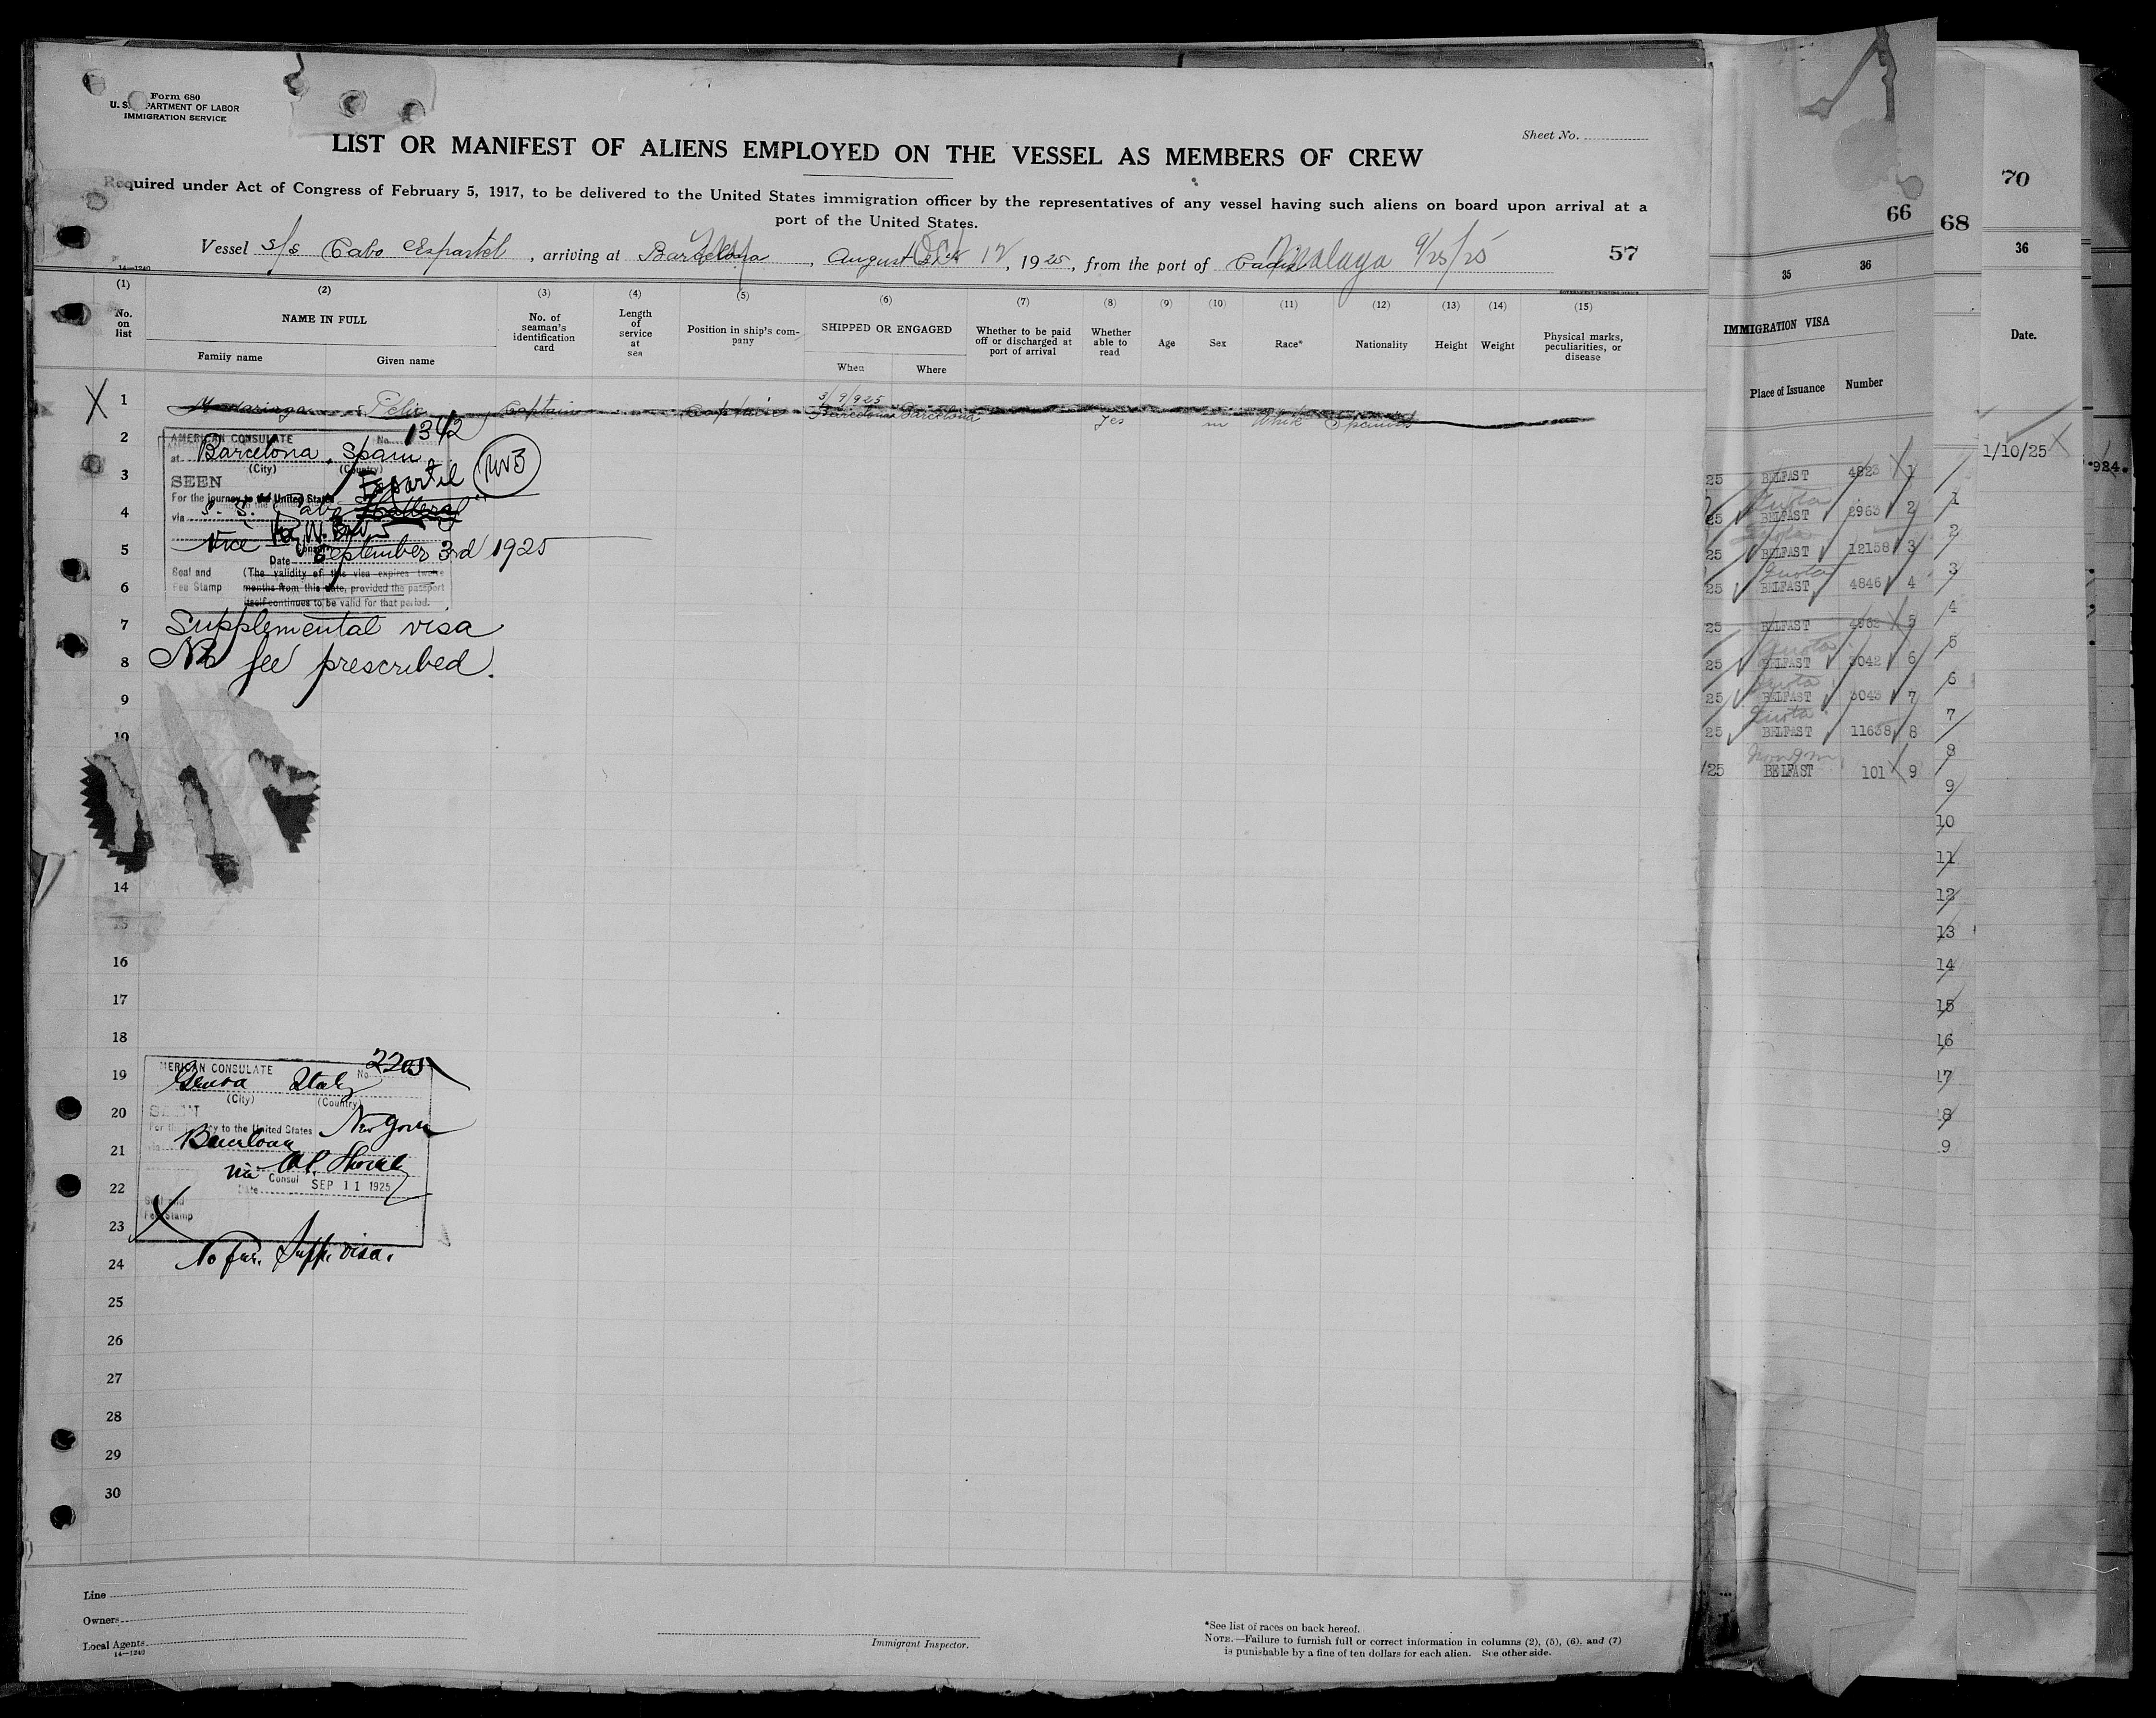 Form 680
U. S. DEPARTMENT OF LABOR
IMMIGRATION SERVICE
Sheet No.
LIST OR MANIFEST OF ALIENS EMPLOYED ON THE VESSEL AS MEMBERS OF CREW
Required under Act of Congress of February 5, 1917, to be delivered to the United States immigration officer by the representatives of any vessel having such aliens on board upon arrival at a
port of the United States.
Vessel S/S Cabo Espartel, arriving at Barcelona, August Oct 12, 1925, from the port of Cadiz Malaga 9/25/25
57
14—1240
(1) (2) (3) (4) (5) (6) (7) (8) (9) (10) (11) (12) (13) (14) (15)
No. on list
NAME IN FULL
Family name
Given name
No. of seaman's identification card
Length of service at sea
Position in ship's company
SHIPPED OR ENGAGED
When
Where
Whether to be paid off or discharged at port of arrival
Whether able to read
Age
Sex
Race*
Nationality
Height
Weight
Physical marks, peculiarities, or disease
X 1 Felix Captain Captain 3/9/925 Barcelona Barcelona Yes m White Spanish
2
3
4
5
6
7
8
9
10
14
15
16
17
18
19
20
21
22
23
24
25
26
27
28
29
30
AMERICAN CONSULATE No. 1342
at Barcelona, Spain
(City) (Country)
SEEN Espartel
For the journey to the United States
via S. S. "Cabo
Vice Consul
Date September 3rd 1925
Seal and Fee Stamp
(The validity of this visa expires twelve
months from this date, provided the passport
itself continues to be valid for that period.
Supplemental visa
No fee prescribed.
AMERICAN CONSULATE No.
Genoa Italy
(City) (Country)
For the journey to the United States New York
Consul
Date SEP 11 1925
Seal and
Fee Stamp
No fee. Supp. visa.
Line
Owners
Local Agents
14—1240
Immigrant Inspector.
*See list of races on back hereof.
NOTE.—Failure to furnish full or correct information in columns (2), (5), (6), and (7)
is punishable by a fine of ten dollars for each alien. See other side.
66
35 36
IMMIGRATION VISA
Place of Issuance Number
25 BELFAST 4823 1
Quota
25 BELFAST 2963 2
Quota
25 BELFAST 12158 3
Quota
25 BELFAST 4846 4
25 BELFAST 4962 5
Quota
25 BELFAST 3042 6
Quota
25 BELFAST 3043 7
Quota
25 BELFAST 11638 8
/25 BELFAST 101 9
68
1
2
3
4
5
6
7
8
9
10
11
12
13
14
15
16
17
18
19
70
36
Date.
1/10/25
924